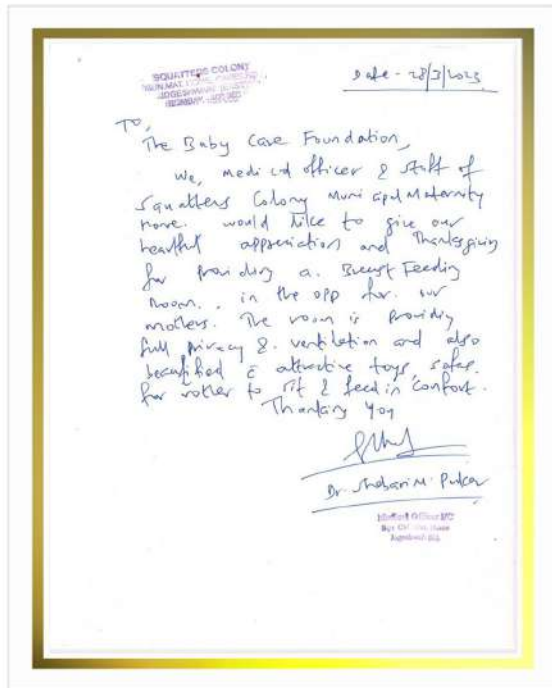 SQUATTERS COLONY
Date - 28/3/2023
To,
The Baby Care Foundation,
We, medical officer & staff of
Squatters Colony Municipal Maternity
Home. would like to give our
heartful appreciation and Thanksgiving
for providing a. Breast Feeding
Room.. in the opp for. our
mothers. The room is providing
full privacy & ventilation and also
beautified c̄ attractive toys, sofas.
for mother to sit & feed in comfort.
Thanking You
Dr. M.
Medical Officer